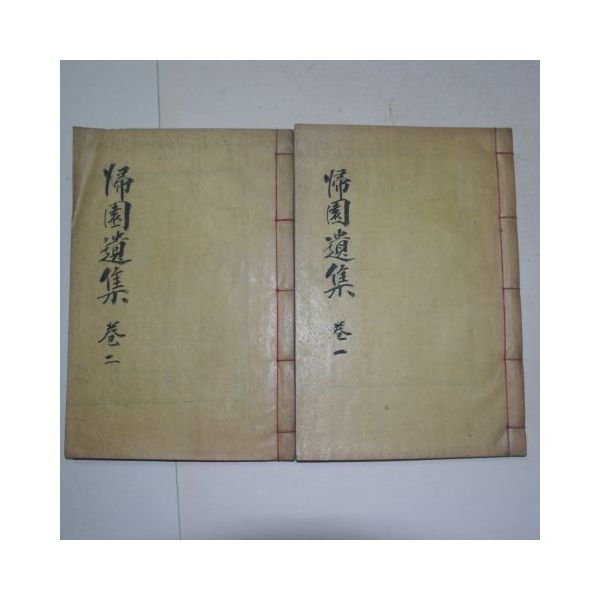 帰園遺集 巻一
帰園遺集 巻二